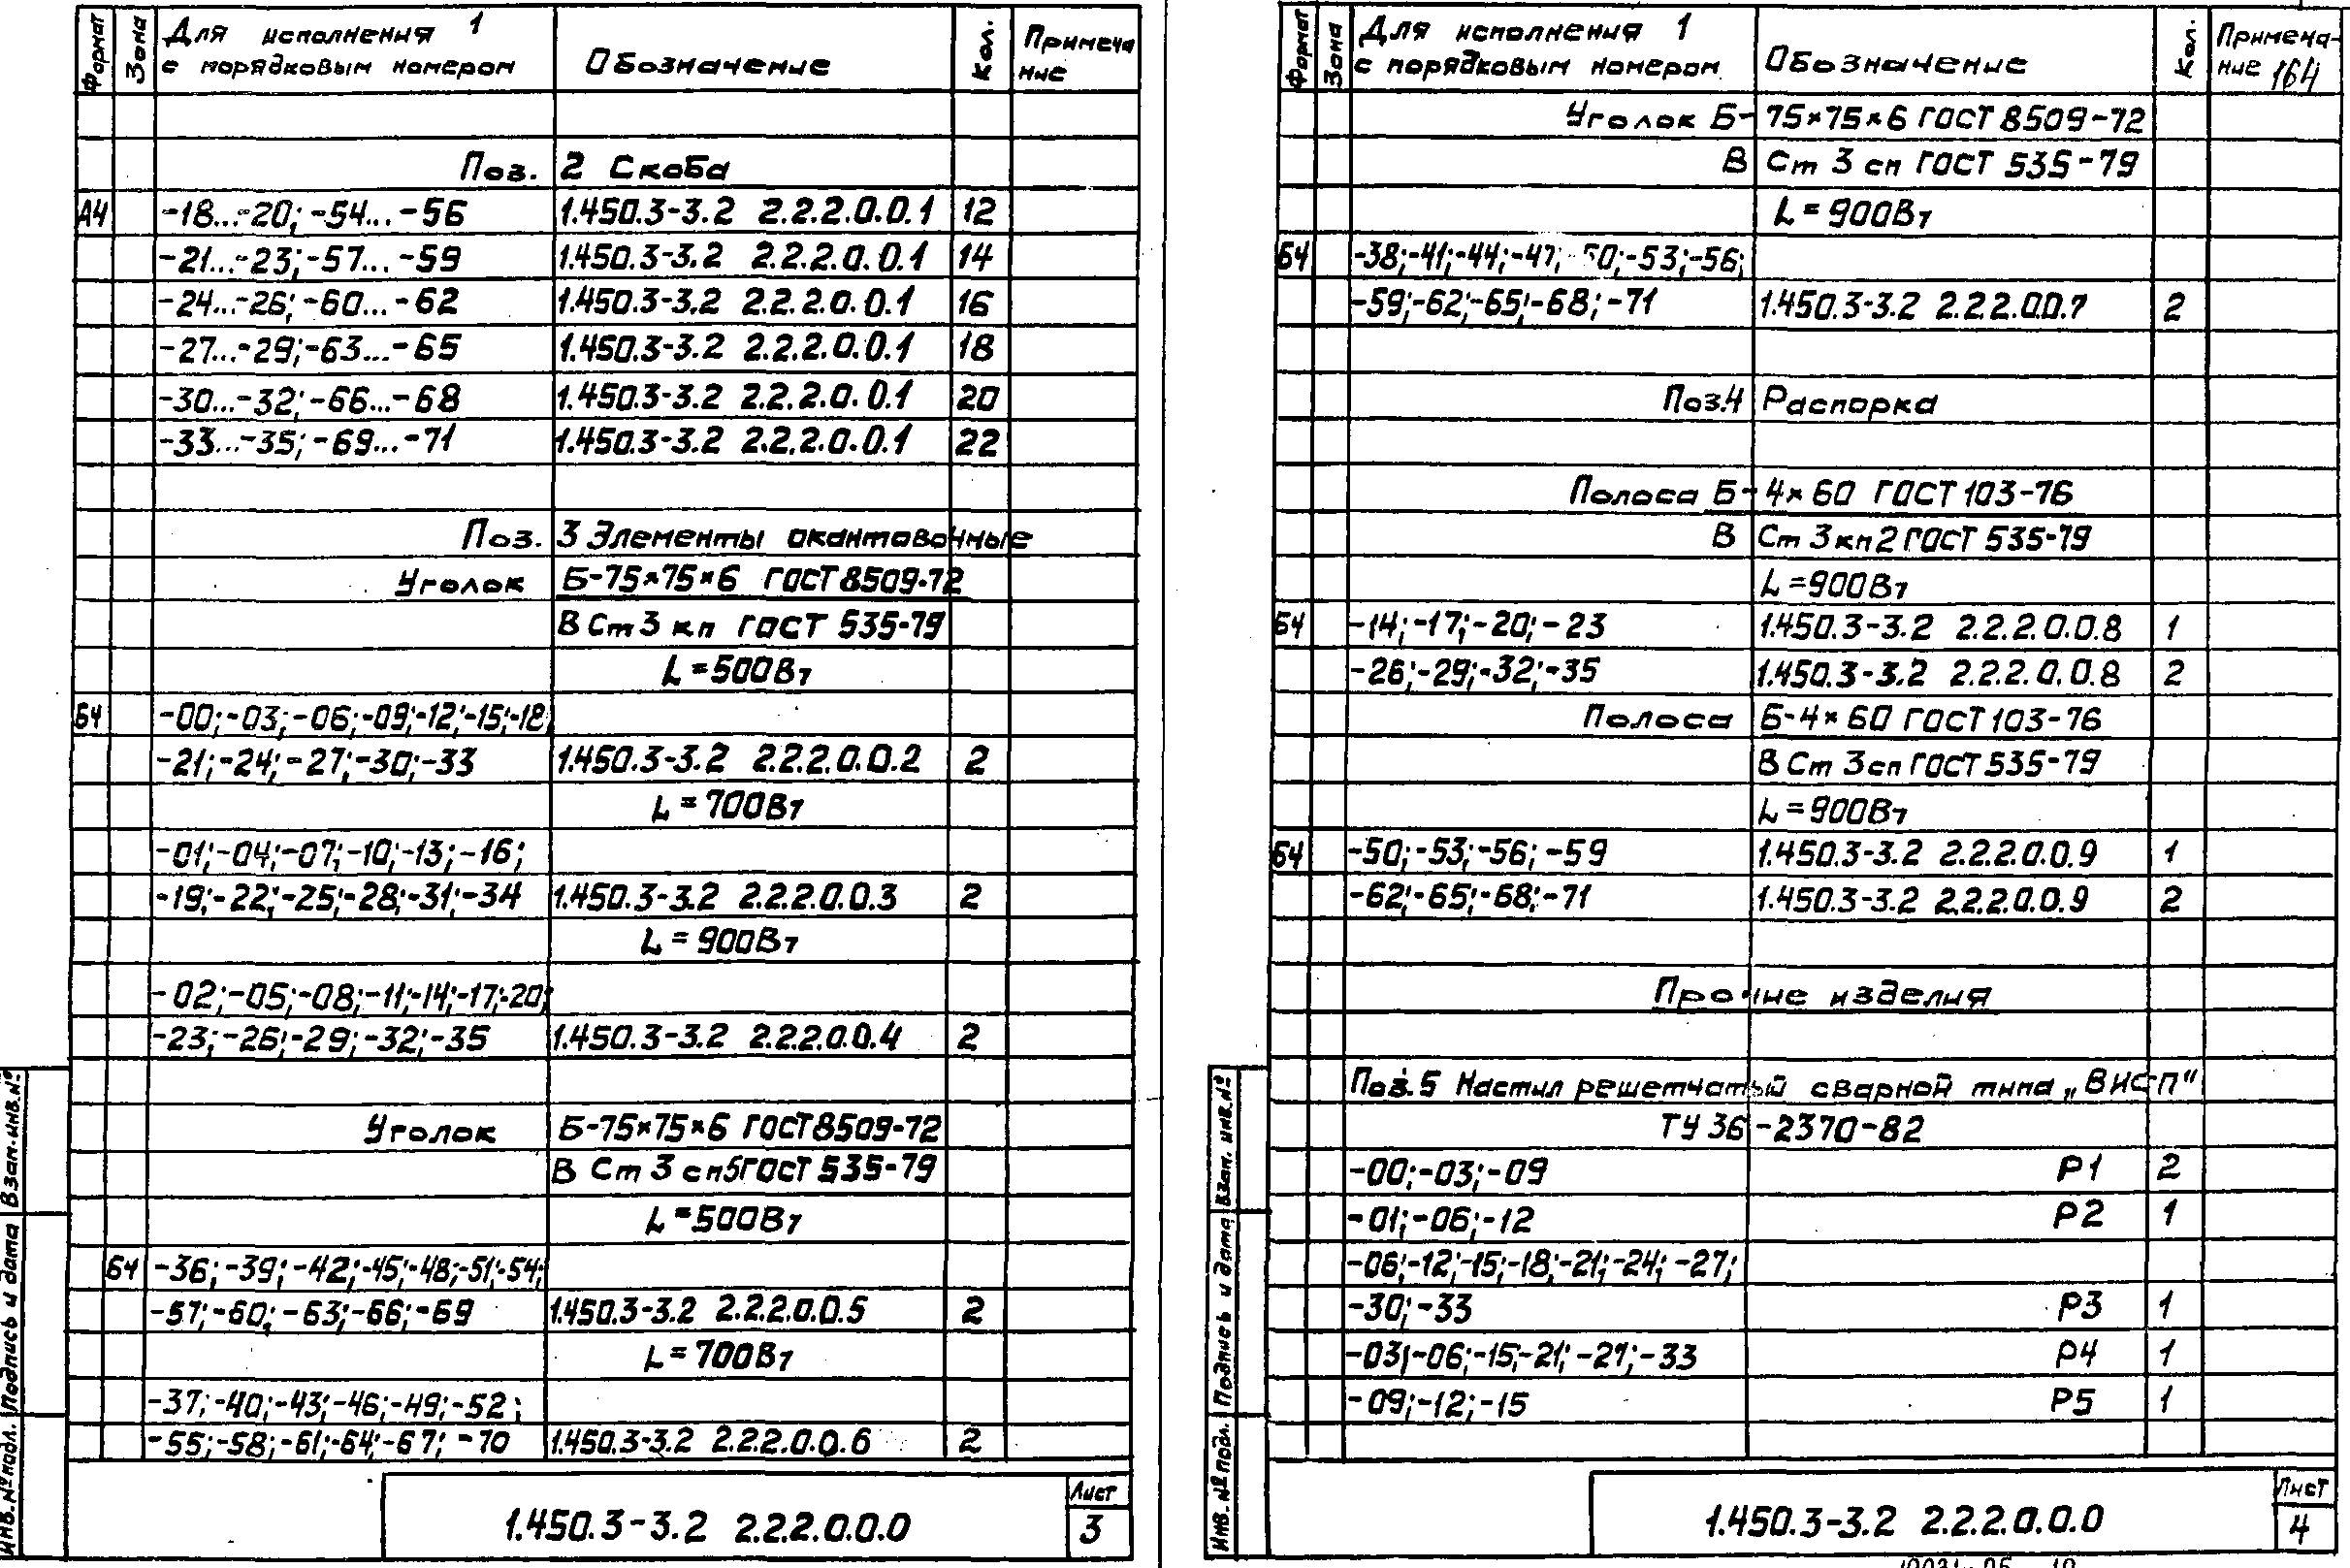 Формат Зона Для исполнения 1 с порядковым номером Обозначение Кол. Примеча ние
Поз. 2 Скоба
А4 -18...-20; -54...-56 1.450.3-3.2 2.2.2.0.0.1 12
-21...-23; -57...-59 1.450.3-3.2 2.2.2.0.0.1 14
-24...-26; -60...-62 1.450.3-3.2 2.2.2.0.0.1 16
-27...-29; -63...-65 1.450.3-3.2 2.2.2.0.0.1 18
-30...-32; -66...-68 1.450.3-3.2 2.2.2.0.0.1 20
-33...-35; -69...-71 1.450.3-3.2 2.2.2.0.0.1 22
Поз. 3 Элементы окантовочные
Уголок Б-75×75×6 ГОСТ 8509-72
В Ст 3 кп ГОСТ 535-79
L=500Вт
Б4 -00;-03;-06;-09;-12;-15;-18;
-21;-24;-27;-30;-33 1.450.3-3.2 2.2.2.0.0.2 2
L=700Вт
-01;-04;-07;-10;-13;-16;
-19;-22;-25;-28;-31;-34 1.450.3-3.2 2.2.2.0.0.3 2
L=900Вт
-02;-05;-08;-11;-14;-17;-20;
-23;-26;-29;-32;-35 1.450.3-3.2 2.2.2.0.0.4 2
Уголок Б-75×75×6 ГОСТ 8509-72
В Ст 3 сп5 ГОСТ 535-79
L=500Вт
Б4 -36;-39;-42;-45;-48;-51;-54;
-57;-60;-63;-66;-69 1.450.3-3.2 2.2.2.0.0.5 2
L=700Вт
-37;-40;-43;-46;-49;-52;
-55;-58;-61;-64;-67;-70 1.450.3-3.2 2.2.2.0.0.6 2
Инв.№ подл. Подпись и дата Взам.инв.№
1.450.3-3.2 2.2.2.0.0.0
Лист
3
Формат Зона Для исполнения 1 с порядковым номером Обозначение Кол. Примеча-ние 164
Уголок Б-75×75×6 ГОСТ 8509-72
В Ст 3 сп ГОСТ 535-79
L=900Вт
Б4 -38;-41;-44;-47; 50;-53;-56;
-59;-62;-65;-68;-71 1.450.3-3.2 2.2.2.0.0.7 2
Поз.4 Распорка
Полоса Б-4×60 ГОСТ 103-76
В Ст 3 кп 2 ГОСТ 535-79
L=900Вт
Б4 -14;-17;-20;-23 1.450.3-3.2 2.2.2.0.0.8 1
-26;-29;-32;-35 1.450.3-3.2 2.2.2.0.0.8 2
Полоса Б-4×60 ГОСТ 103-76
В Ст 3 сп ГОСТ 535-79
L=900Вт
Б4 -50;-53;-56;-59 1.450.3-3.2 2.2.2.0.0.9 1
-62;-65;-68;-71 1.450.3-3.2 2.2.2.0.0.9 2
Прочие изделия
Поз. 5 Настил решетчатый сварной типа „ВИСП"
ТУ 36-2370-82
-00;-03;-09 Р1 2
-01;-06;-12 Р2 1
-06;-12;-15;-18;-21;-24;-27;
-30;-33 Р3 1
-03;-06;-15;-21;-27;-33 Р4 1
-09;-12;-15 Р5 1
Инв.№ подл. Подпись и дата Взам. инв.№
1.450.3-3.2 2.2.2.0.0.0
Лист
4